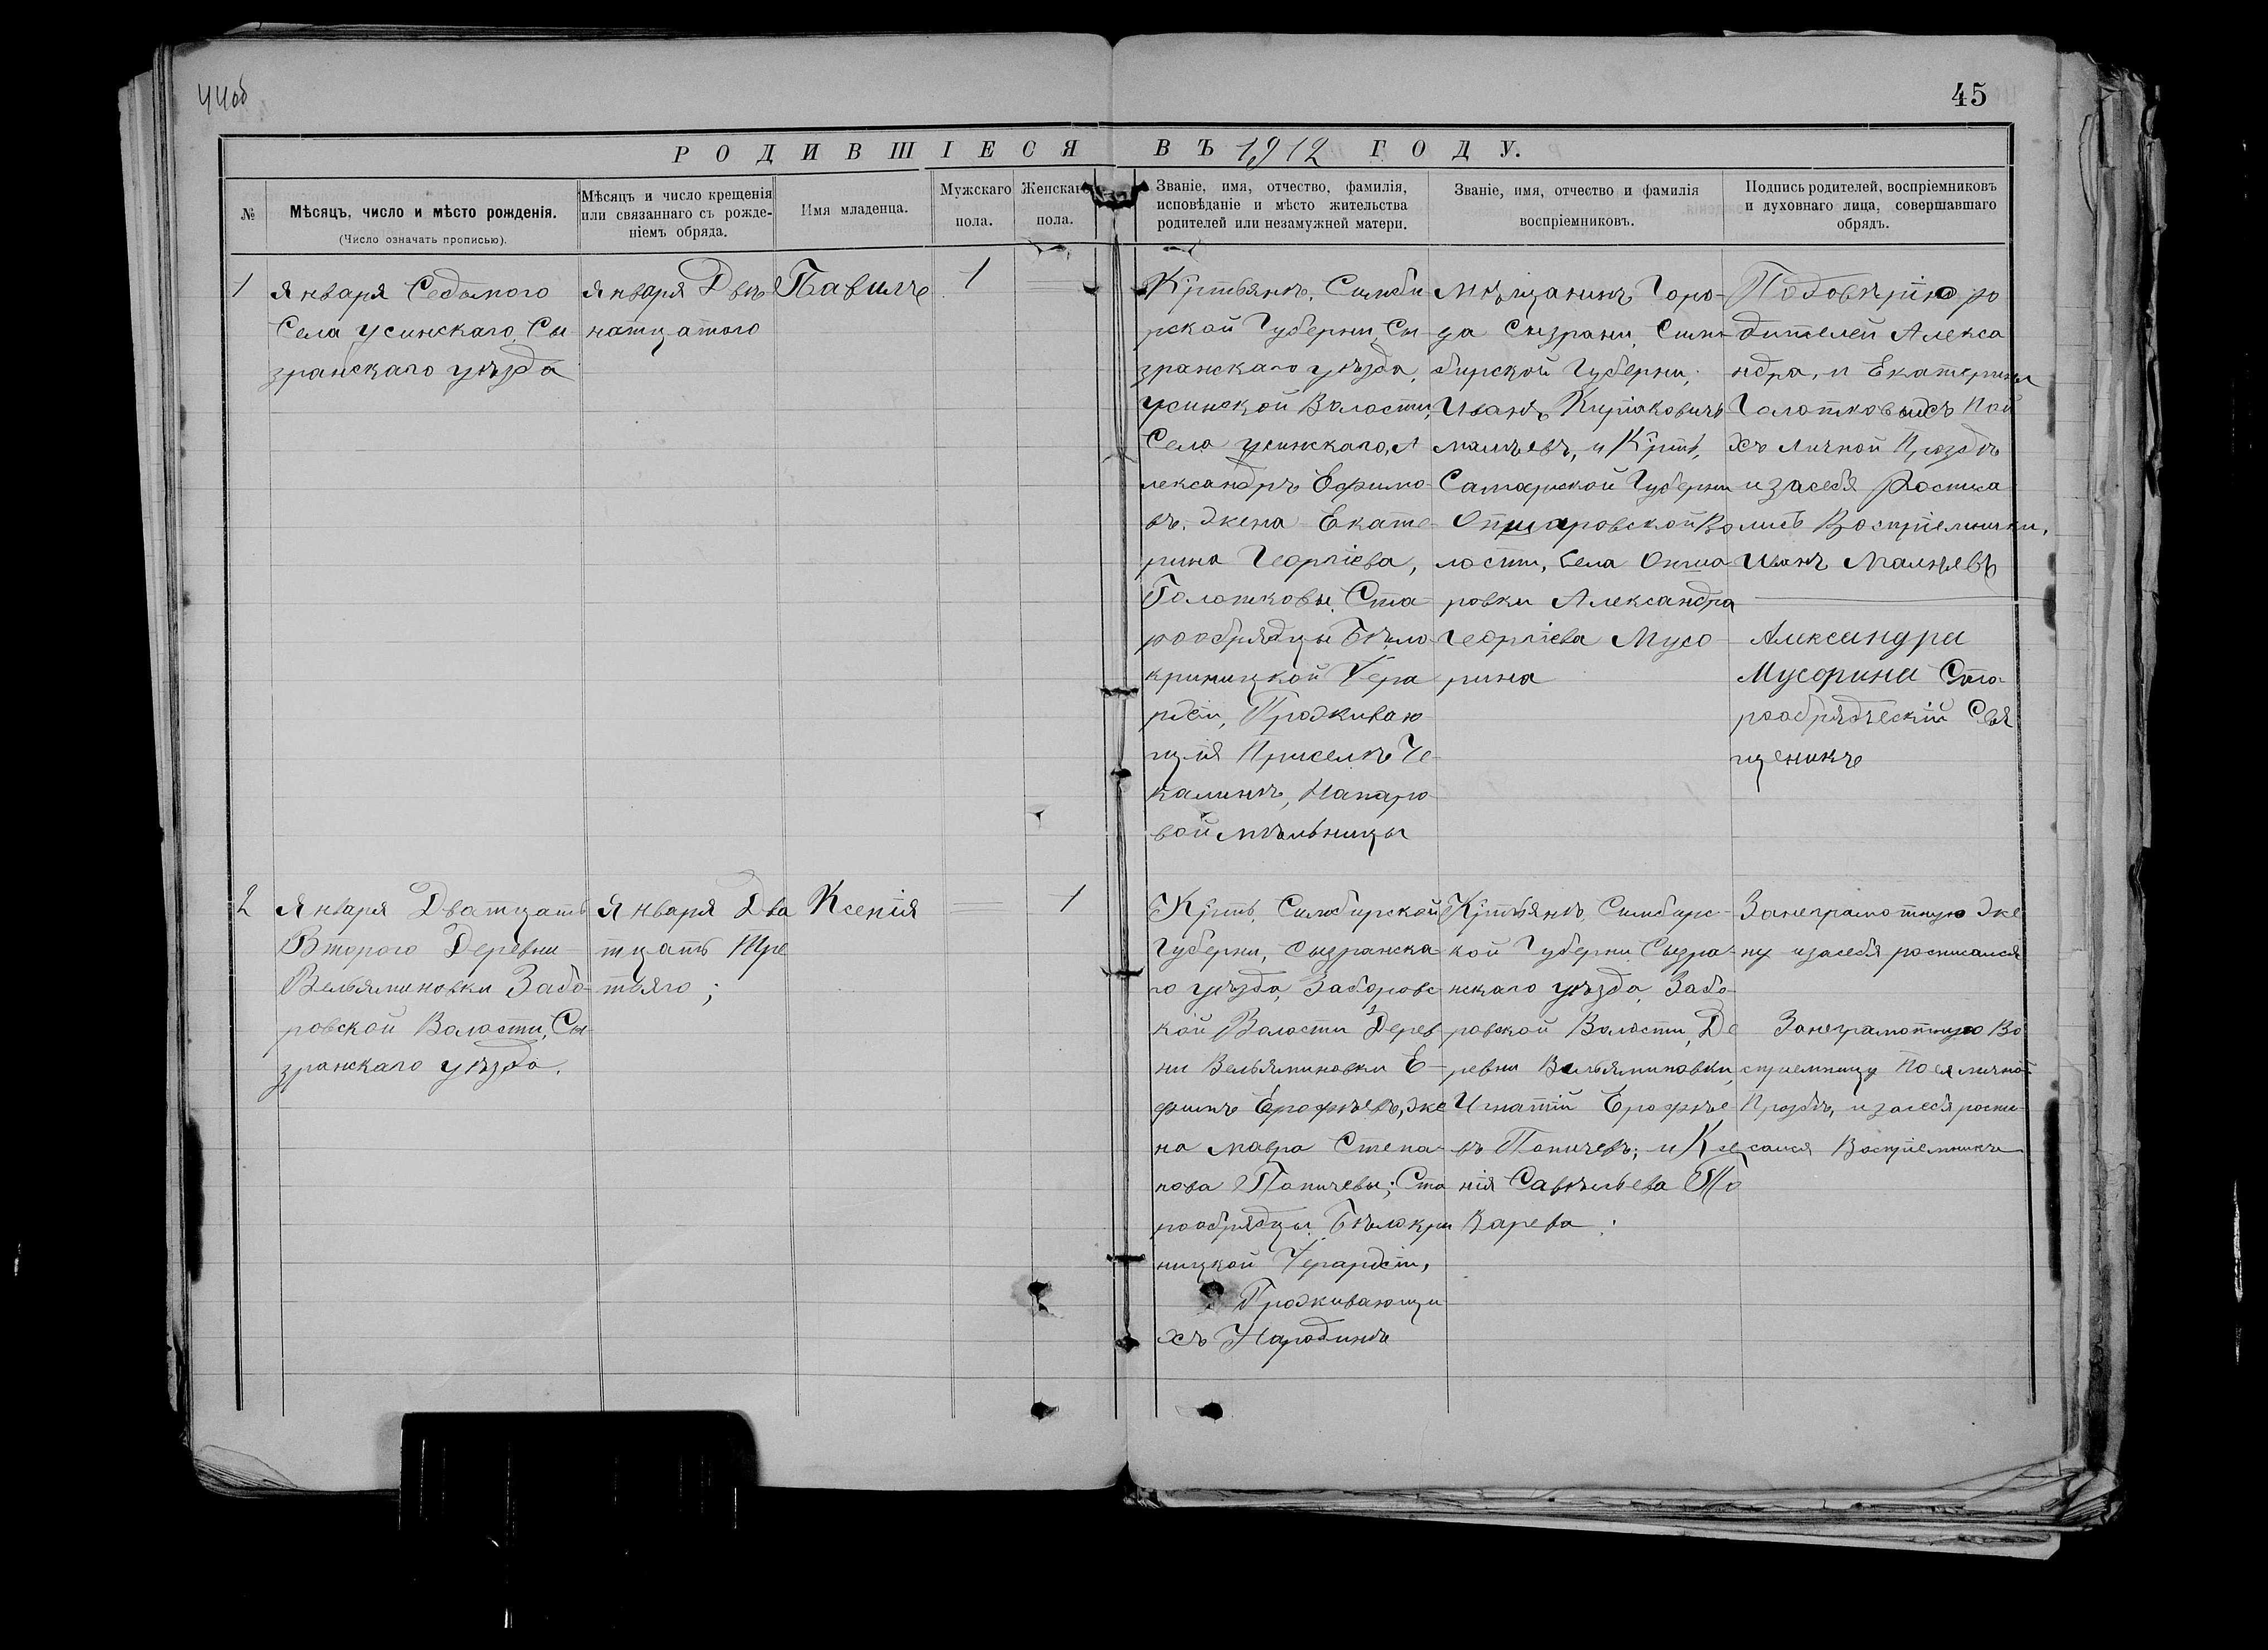 44об
45
РОДИВШІЕСЯ ВЪ 1912 ГОДУ.
№
Мѣсяцъ, число и мѣсто рожденія.
(Число означать прописью).
Мѣсяцъ и число крещенія
или связаннаго съ рожде-
ніемъ обряда.
Имя младенца.
Мужскаго
пола.
Женскаго
пола.
Званіе, имя, отчество, фамилія,
исповѣданіе и мѣсто жительства
родителей или незамужней матери.
Званіе, имя, отчество и фамилія
воспріемниковъ.
Подпись родителей, воспріемниковъ
и духовнаго лица, совершавшаго
обрядъ.
1
Января Седьмого
Села Усинскаго, Сы
зранскаго уѣзда
Января Двѣ
натцатого
Павилъ
1
Крѣтьянѣ, Симби
рской Губерни, Сы-
зранскаго уѣзда,
Усинской Валости,
Села Усинскаго, А
лександръ Ефимо-
въ, жена Екате-
рина Георгіева,
Голотковы, Ста-
рообрядцы Бѣло-
криницкой Іера
рхіи, Проживаю
щия Приселѣ Че-
калинѣ, Напаро-
вой мѣльницы
Мѣщанинъ Горо-
да Сызрани, Сим-
бирской Губерни,
Иванъ Киріяковичъ
малѣевъ, и Крѣть,
Самарской Губерни
Опшаровской Во
лости, Села Опша
ровки Александра
Георгіева Мусо
рина
Подовѣрію ро
дителей Алекса
ндра, и Екатерины
Голотковыхъ Пои
хъ личной Прозбѣ
изасебя Росписа
лись Воспріемники,
Иванъ Малѣевъ
Александра
Мусорина Ста-
рообрядческій Свя
щеникъ
2
Января Дватцать
Второго Деревни
Вельяминовки Забо-
ровской Валости, Сы-
зранскаго уѣзда.
Января Два
тцать Тре
тьяго;
Ксенія
1
Крѣть, Симбирской
Губерни, Сызранска-
го уѣзда, Заборовс-
кой Валости Дерев
ни Вельяминовки Е-
фимъ Ерофѣевъ, же
на мавра Степа-
нова Попичевы; Ста
рообрядцы, Бѣлокри
ницкой Іерархіи,
Проживающи
хъ Народинѣ
Крѣтьянѣ, Симбирс-
кой Губерни Сызра-
нскаго уѣзда, Забо-
ровской Валости, Де
ревни Вельяминовки,
Игнатій Ерофѣе
въ Попичевъ; и Ксе
нія Савѣльева То
карева;
Занеграмотную Же
ну изасебя росписался
Занеграмотную Во
спріемницу Поея личной
Прозбѣ, изасебя роспи-
сался Воспріемникъ